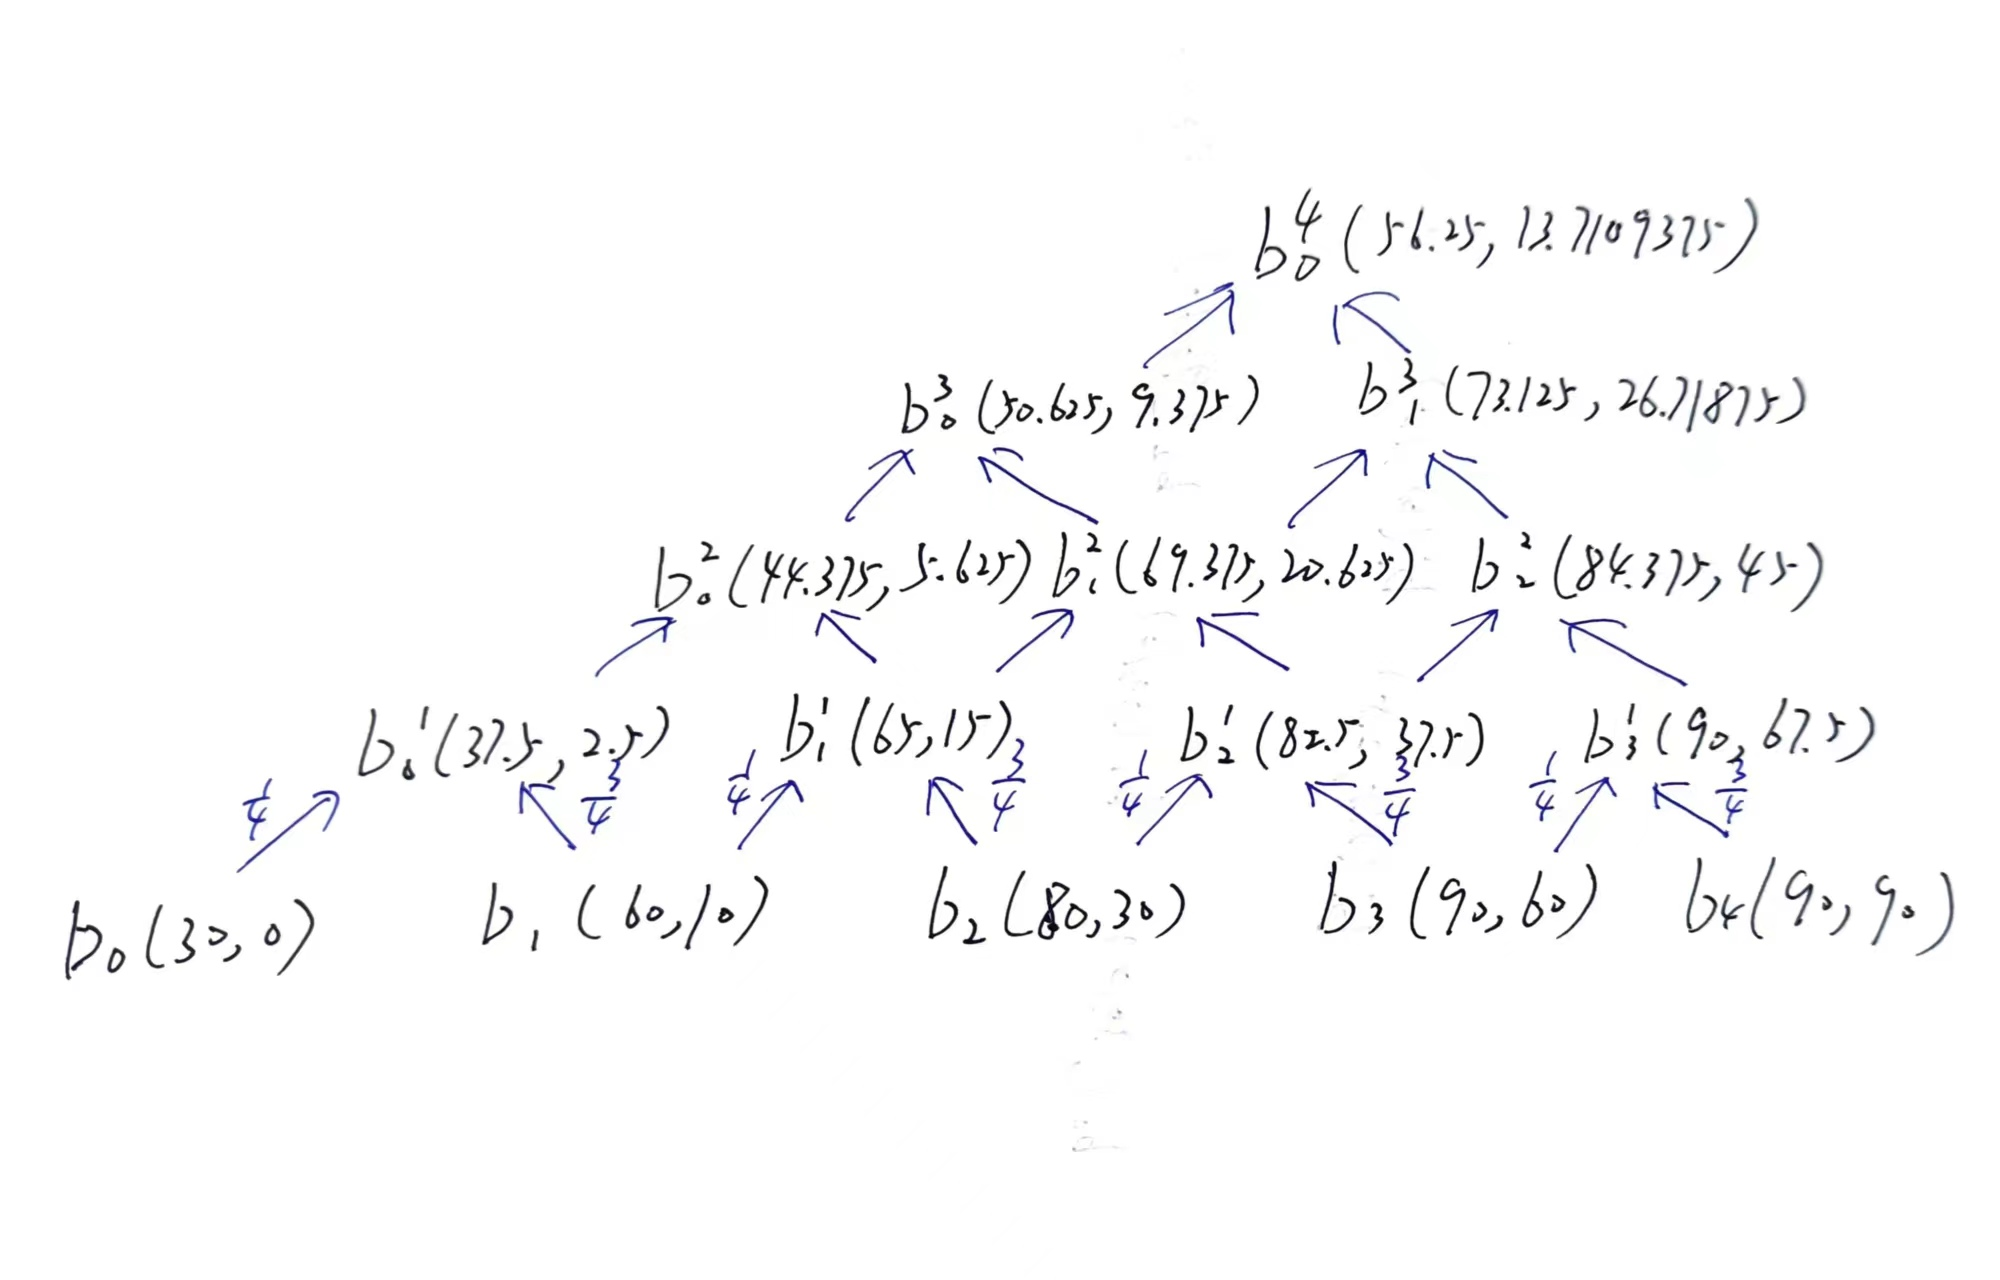 b₀⁴(56.25, 13.7109375)
b₀³(50.625, 9.375) b₁³(73.125, 26.71875)
b₀²(44.375, 5.625) b₁²(69.375, 20.625) b₂²(84.375, 45)
b₀¹(37.5, 2.5) b₁¹(65, 15) b₂¹(82.5, 37.5) b₃¹(90, 67.5)
1/4 3/4 1/4 3/4 1/4 3/4 1/4 3/4
b₀(30, 0) b₁(60, 10) b₂(80, 30) b₃(90, 60) b₄(90, 90)